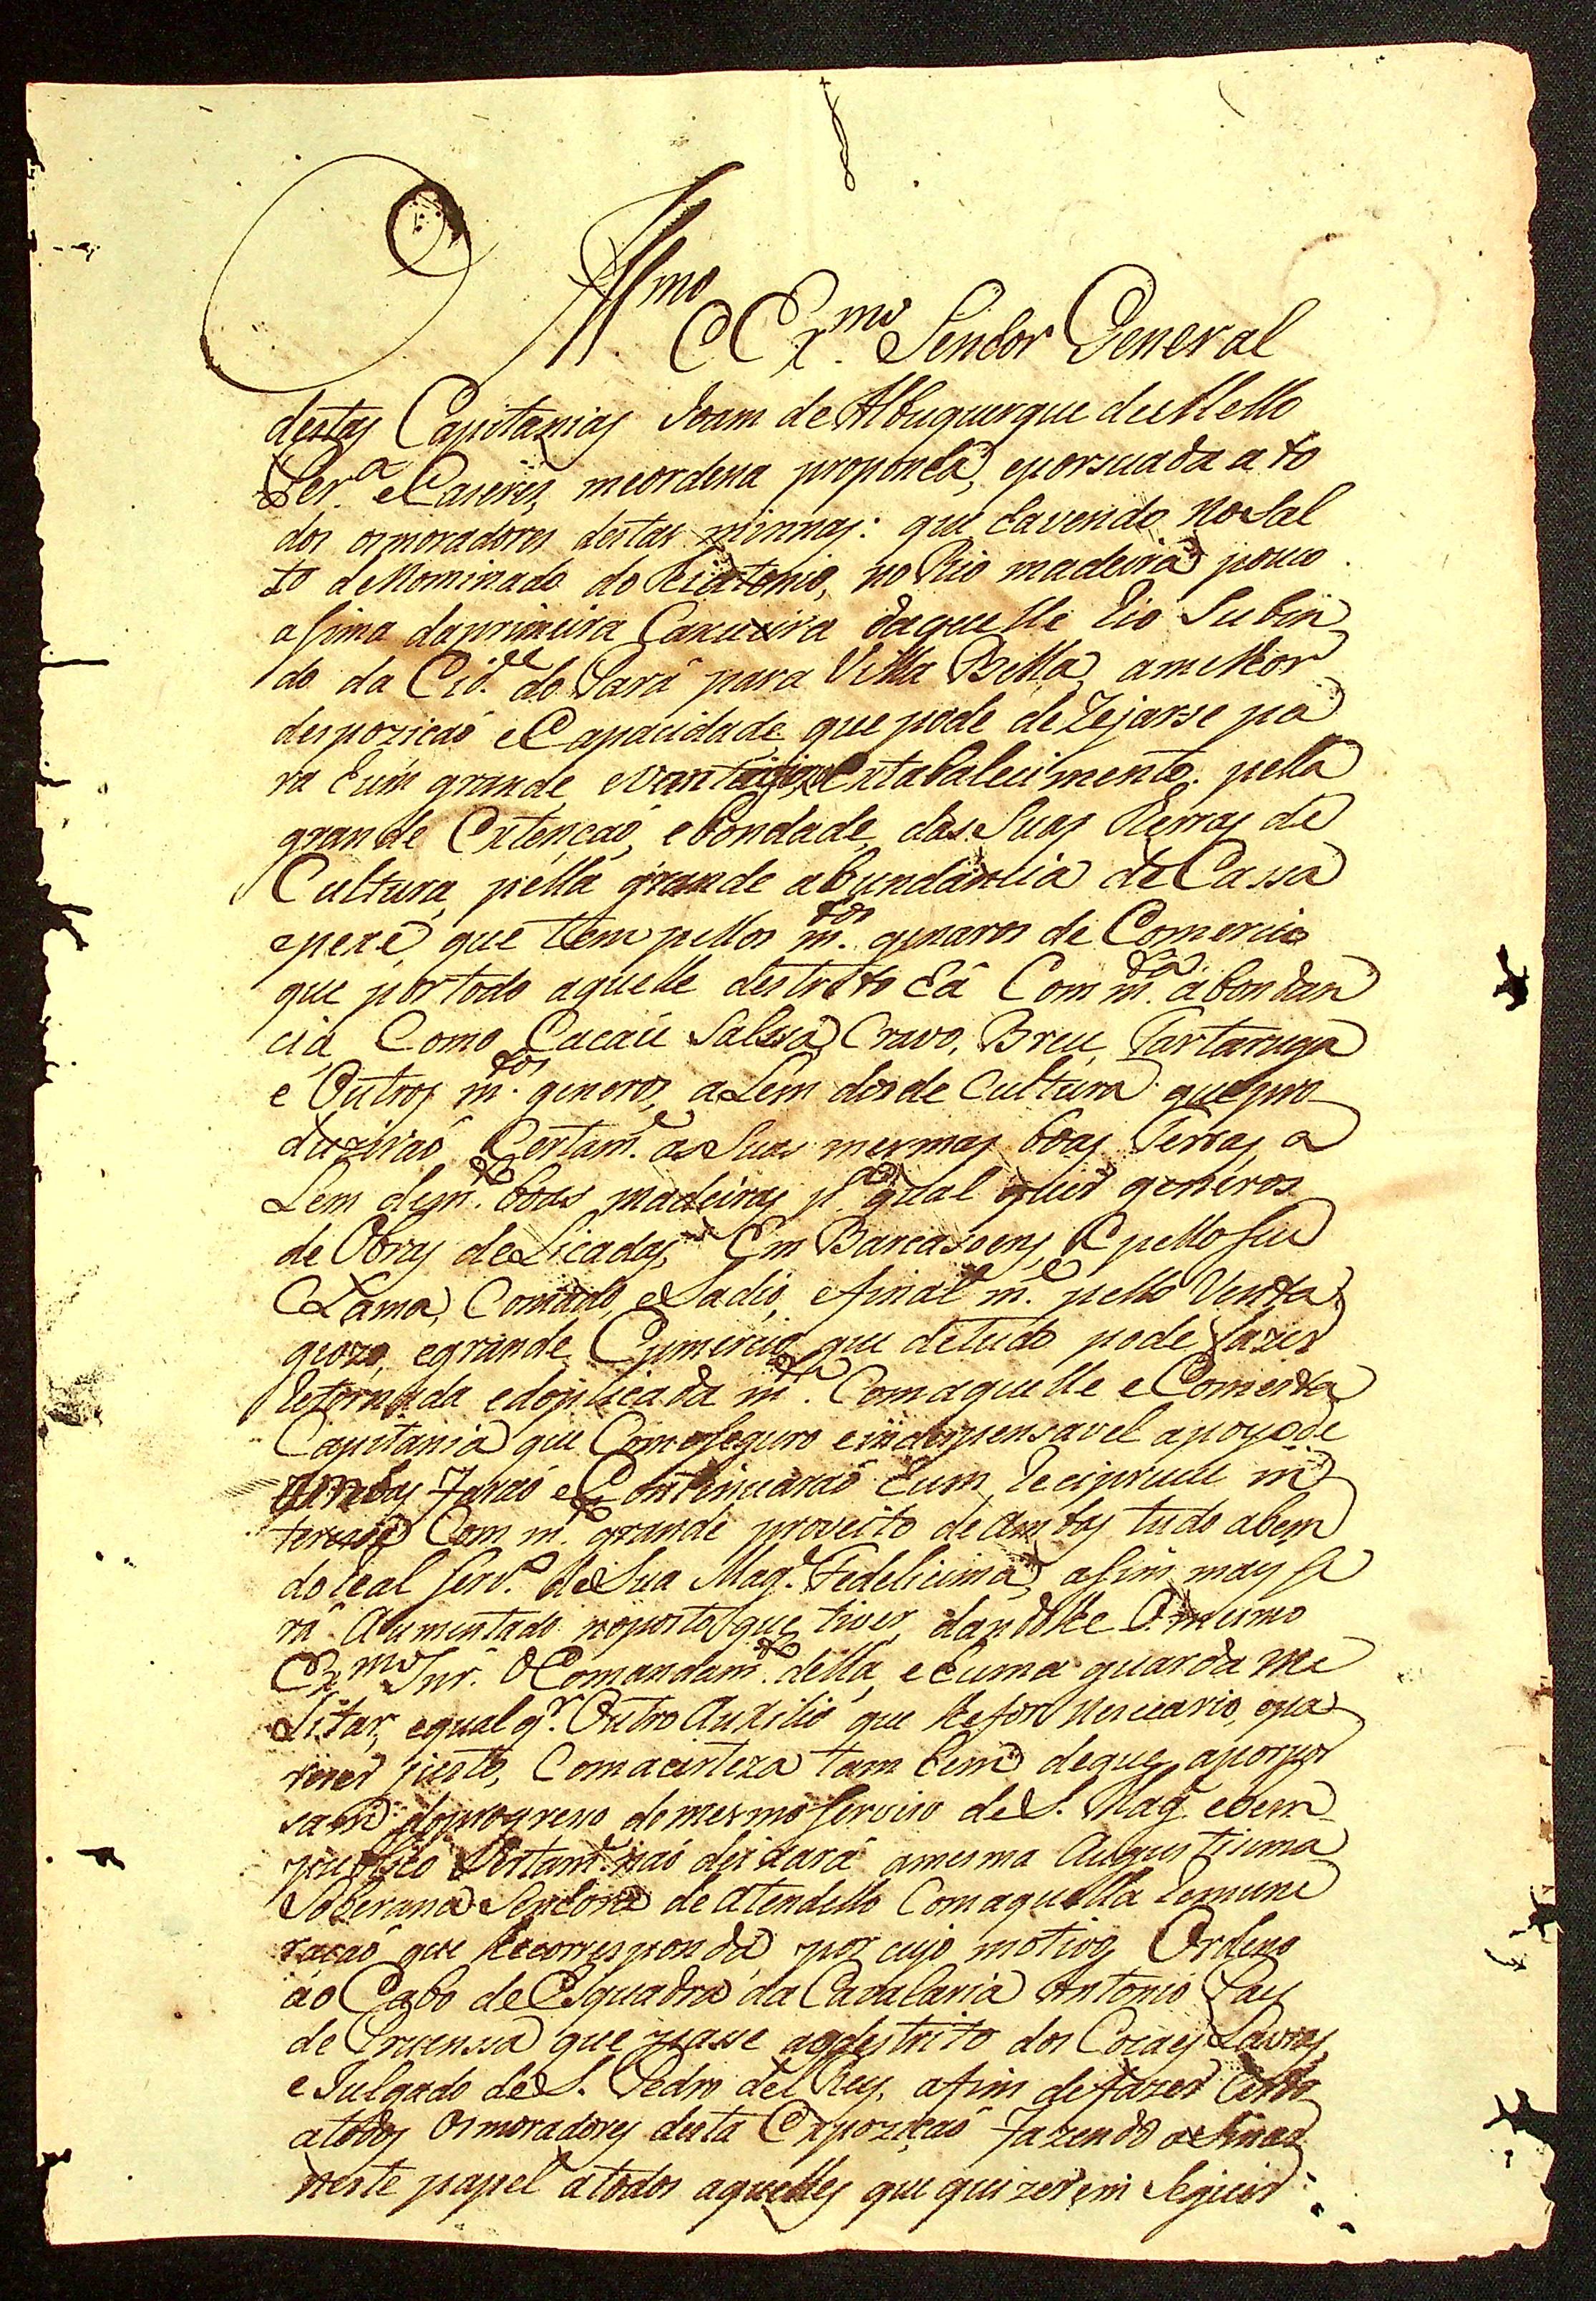 O Ill.mo
e Ex.mo Senhor General
destas Capitanias Joam de Albuquerque de Mello
Per.a e Caseres, me ordena proponha, e persuada a to
dos os moradores destas minnas: que havendo no Sal
to deNominado do no Rio madeira pouco
asima da primeira Caxueira daquelle Rio Subin
do da Cid.de do Pará para Villa Bella, a milhor
despozicaõ e Capacidade que pode dezejarse pa
ra hum grande, e Estabalecimento, pella
grande Extençaõ, e bondade, das Suas terras de
Cultura, pella grande abundancia de Cassa
e pexe, que tem pellos m.tos generos de Comercio
que por todo aquelle destrito há Com m.ta abondan
cia Como Cacaú Salssa, Cravo, Breu, Tartaruga
e Outros m.tos generos, aLem dos de Cultura que pro
duziraõ Certam.e as Suas mesmas boas Terras, a
Lem de m.to boas madeiras p.a qual quer generos
de Obras deLicadas, Em Barcasoens, e pello seu
CLama, Comodo, e Sadio, e final m.e pello Venta
giozo, e grande Comercio que de tudo pode fazer
Retornada e dopLicada m.ta Com aquelle e Com esta
Capitania que Como Seguro e indespensavel apoyo de
ambas faraõ e Continuaraõ hum Reciproco in
terece Com m.to grande proveito de ambas tudo a bem
do Real Serv.o de Sua Mag.e Fedelicima, asim mais se
rá Aumentado no posto que tiver, dandolhe O mesmo
Ex.mo Snr. O Comandam.to della, e huma guarda Me
Litar, e qual q.r Outro Auxilio que lhe for Nececario, e pa
recer justo, Com a certeza tam bem de que, a por
do progreso do mesmo Servico de S. Mag.e e bem
publico Certam.e naõ deixará a mesma Augustisima
Soberana Senhora de atendello Com aquella Remune
racaõ que lhe corresponda, por cujo motivo, Ordeno
ao Cabo de Esquadra da Cavalaria Antonio
de que passe ao destrito dos Cocaes Lavras,
e Julgado de S. Pedro del Rey, afim de fazer Certo
a todos Os moradores desta Expozicaõ fazendo asinar
neste papel a todos aquelles que quizerem Seguir